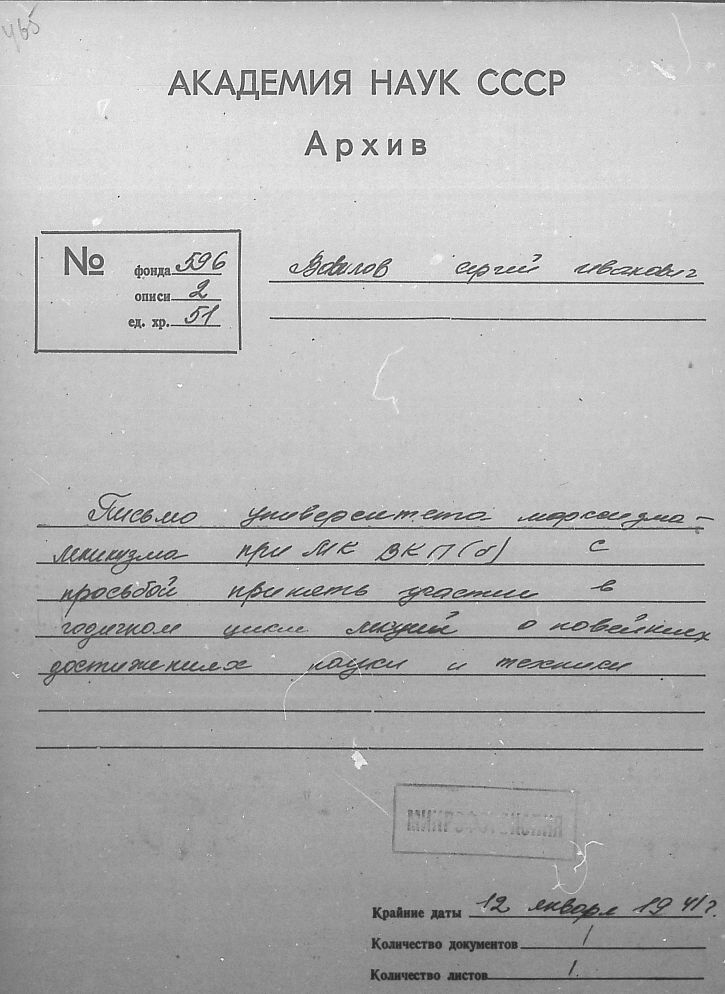 465
АКАДЕМИЯ НАУК СССР
Архив
№
фонда 596
описи 2
ед. хр. 51
Вавилов Сергей Иванович
Письмо университета марксизма-
ленинизма при МК ВКП(б) с
просьбой принять участие в
годичном цикле лекций о новейших
достижениях науки и техники
МИКРОФОТОКОПИЯ
Крайние даты 12 января 1941 г.
Количество документов 1
Количество листов 1.